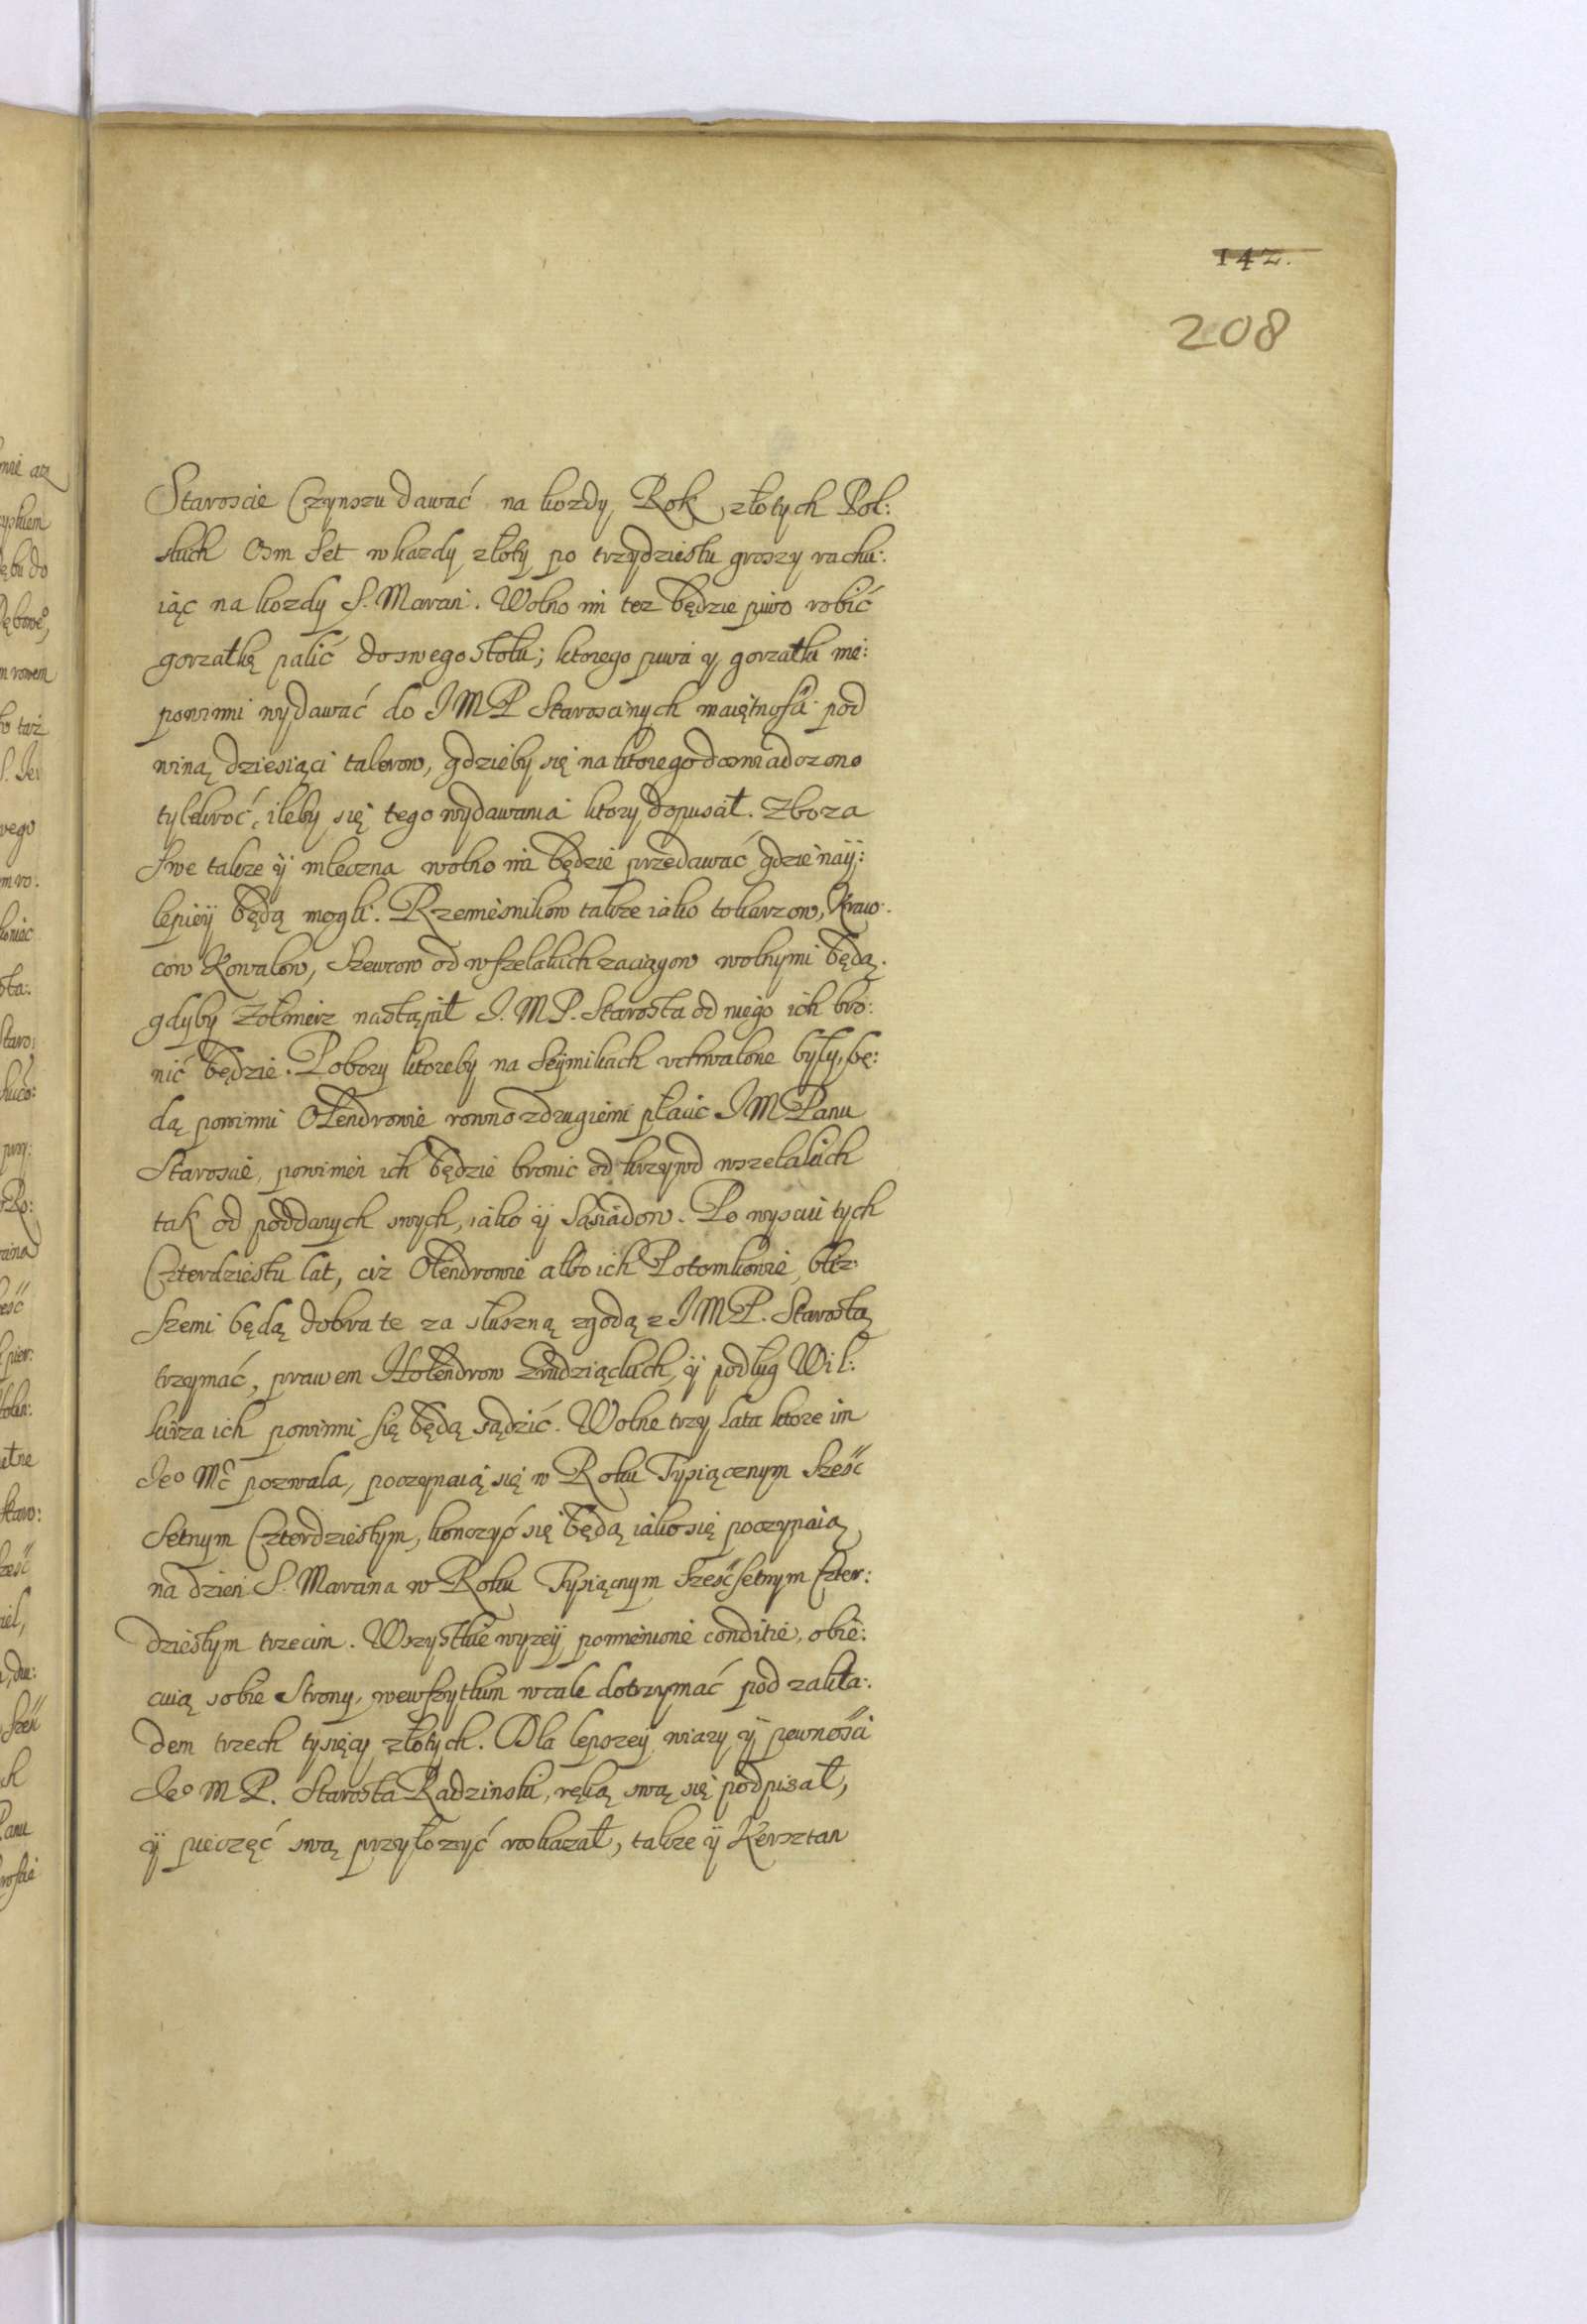 142.
208
Staroscie Czynszu dawać na kozdy Rok złotych Pol:
skich Osm set w kazdy złoty po trzydziestu groszy rachu:
iąc na kozdy S. Marcin. Wolno im tez będzie piwo robić
gorzałkę palić do swego stołu; ktorego piwa y gorzałki nie:
powinni wydawać do IMP Staroscinych maiętnosci pod
winą dziesiąci talerow, gdzieby się na ktorego doswiadczono
tylekroć, ileby się tego wydawania ktory dopuscił. Zboza
swe takze ÿ mleczna wolno im będzie przedawać gdzie naÿ:
lepieÿ będą mogli. Rzemiesnikow takze iako tokarzow, Kraw:
cow Kowalow, Szewcow od wszelakich zaciągow wolnymi będą.
gdyby Zołnierz nastąpił I. M P. Starosta od niego ich bro:
nić będzie. Pobory ktoreby na Seÿmikach vchwalone były, bę:
dą powinni Olendrowie rowno z drugiemi płacic IM Panu
Staroscie, powinien ich będzie bronic od krzywd wszelakich
tak od poddanych swych, iako ÿ Sąsiadow. Po wysciu tych
Czterdziestu lat, ciz Olendrowie albo ich Potomkowie, bliz:
szemi będą dobra te za słuszną zgodą z IMP. Starostą
trzymać, prawem Holendrow Grudziąckich, ÿ podług Wil:
kirza ich powinni się będą sądzić. Wolne trzy lata ktore im
Jeo Mć pozwala, poczynaią się w Roku Tysiącznym Sześć
Setnym Czterdziestym, konczyć się będą iako się poczynaią
na dzien S. Marcina w Roku Tysiącnym Sześćsetnym Czter:
dziestym trzecim. Wszystkie wyzeÿ pomienione conditie, obie:
cuią sobie Strony, wewszytkim wcale dotrzymać pod zakła:
dem trzech tysięcy złotych. Dla lepszeÿ wiary ÿ pewności
Jeo M P. Starosta Radzinski, ręką swą się podpisał,
ÿ pieczęć swą przyłozyć roskazał, takze ÿ Kersztan